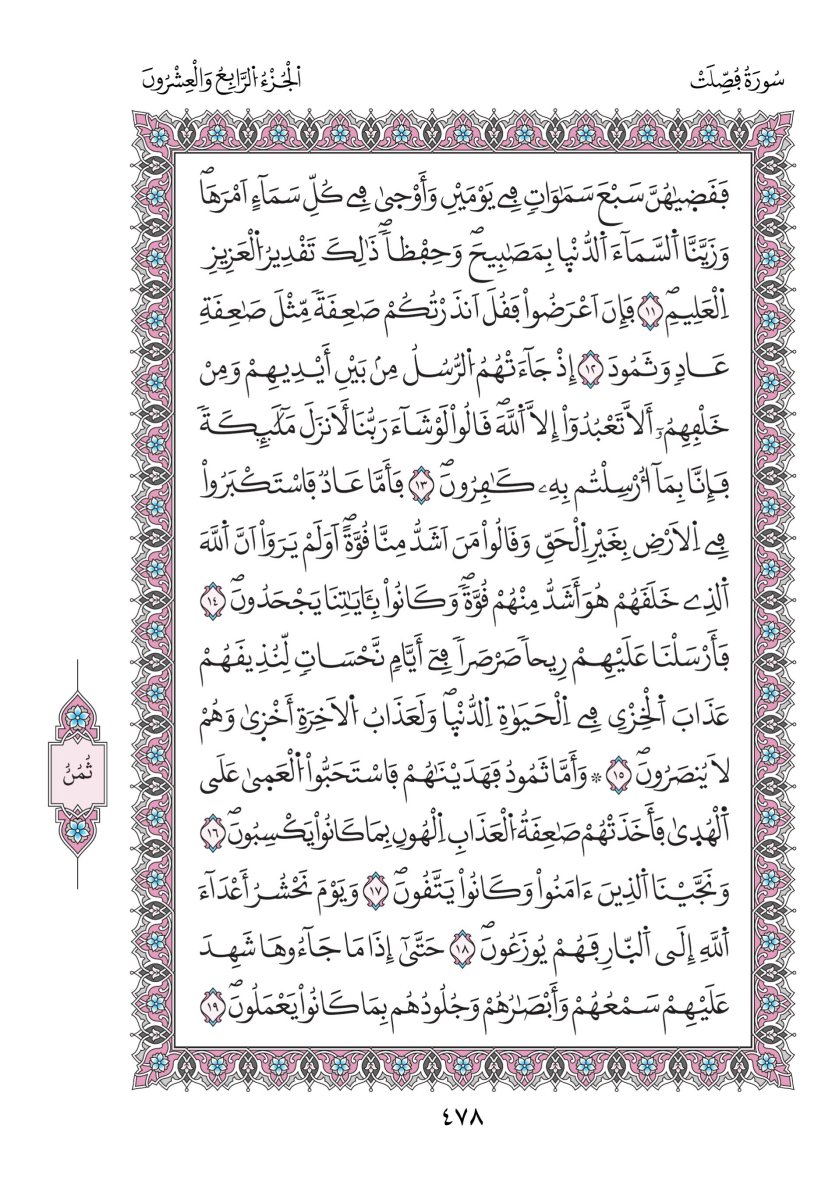 سُورَةُ فُصِّلَتْ
اَ۬لْجُزْءُ اُ۬لرَّابِعُ وَالْعِشْرُونَ
فَقَضۭيٰهُنَّ سَبْعَ سَمَٰوَاتٖ فِے يَوْمَيْنِ وَأَوْح۪يٰ فِے كُلِّ سَمَآءٍ اَمْرَهَاۖ
وَزَيَّنَّا اَ۬لسَّمَآءَ اَ۬لدُّنْي۪ا بِمَصَٰبِيحَۖ وَحِفْظاٗۖ ذَٰلِكَ تَقْدِيرُ اُ۬لْعَزِيزِ
اِ۬لْعَلِيمِۖ ١١ فَإِنَ اَعْرَضُواْ فَقُلَ اَنذَرْتُكُمْ صَٰعِقَةٗ مِّثْلَ صَٰعِقَةِ
عَادٖ وَثَمُودَ ١٢ إِذْ جَآءَتْهُمُ اُ۬لرُّسُلُ مِنۢ بَيْنِ أَيْدِيهِمْ وَمِنْ
خَلْفِهِمُۥٓ أَلَّا تَعْبُدُوٓاْ إِلَّا اَ۬للَّهَۖ قَالُواْ لَوْ شَآءَ رَبُّنَا لَأَنزَلَ مَلَٰٓئِكَةٗ
فَإِنَّا بِمَآ أُرْسِلْتُم بِهِۦ كَٰفِرُونَۖ ١٣ فَأَمَّا عَادٞ فَاسْتَكْبَرُواْ
فِے اِ۬لَارْضِ بِغَيْرِ اِ۬لْحَقِّ وَقَالُواْ مَنَ اَشَدُّ مِنَّا قُوَّةًۖ اَوَلَمْ يَرَوَاْ اَنَّ اَ۬للَّهَ
اَ۬لذِے خَلَقَهُمْ هُوَ أَشَدُّ مِنْهُمْ قُوَّةٗۖ وَكَانُواْ بِـَٔايَٰتِنَا يَجْحَدُونَۖ ١٤
فَأَرْسَلْنَا عَلَيْهِمْ رِيحاٗ صَرْصَراٗ فِےٓ أَيَّامٖ نَّحْسَاتٖ لِّنُذِيقَهُمْ
عَذَابَ اَ۬لْخِزْيِ فِے اِ۬لْحَيَوٰةِ اِ۬لدُّنْي۪اۖ وَلَعَذَابُ اُ۬لَاخِرَةِ أَخْز۪يٰ وَهُمْ
لَا يُنصَرُونَۖ ١٥ * وَأَمَّا ثَمُودُ فَهَدَيْنَٰهُمْ فَاسْتَحَبُّواْ اُ۬لْعَم۪يٰ عَلَى
اَ۬لْهُد۪يٰ فَأَخَذَتْهُمْ صَٰعِقَةُ اُ۬لْعَذَابِ اِ۬لْهُونِ بِمَا كَانُواْ يَكْسِبُونَۖ ١٦
وَنَجَّيْنَا اَ۬لذِينَ ءَامَنُواْ وَكَانُواْ يَتَّقُونَۖ ١٧ وَيَوْمَ نَحْشُرُ أَعْدَآءَ
اَ۬للَّهِ إِلَى اَ۬لنّ۪ارِ فَهُمْ يُوزَعُونَۖ ١٨ حَتَّىٰٓ إِذَا مَا جَآءُوهَا شَهِدَ
عَلَيْهِمْ سَمْعُهُمْ وَأَبْصَٰرُهُمْ وَجُلُودُهُم بِمَا كَانُواْ يَعْمَلُونَۖ ١٩
ثُمُنُ
٤٧٨